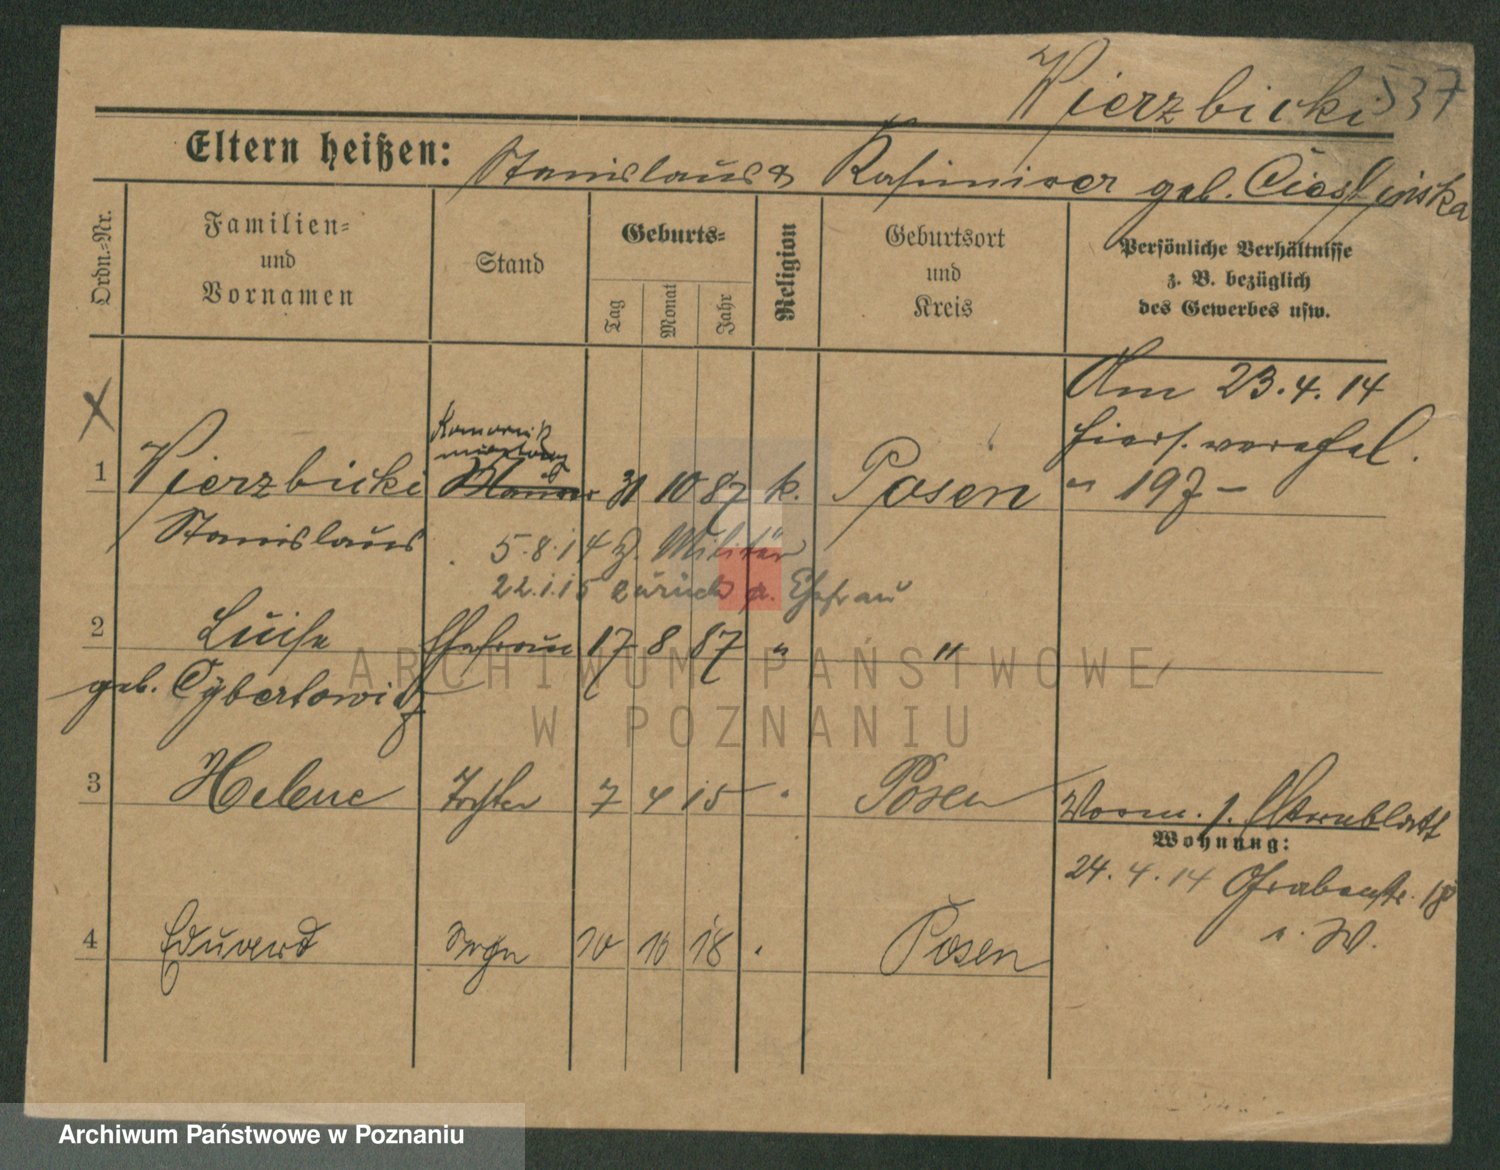 Wierzbicki 537
Eltern heißen: Stanislaus & Kasimira geb. Cieslinska
Ordn.-Nr.
Familien- und Vornamen
Stand
Geburts-
Tag
Monat
Jahr
Religion
Geburtsort und Kreis
Persönliche Verhältnisse z. B. bezüglich des Gewerbes usw.
Am 23.4.14
hiers. verehel.
" 197 -
1 Wierzbicki Maurer 31 10 87 k. Posen
Stanislaus
5.8.14 z. Militär
22.1.15 zurück z. Ehefrau
2 Luise Ehefrau 17 8 87 " "
geb. Cybertowicz
3 Helene Tochter 7 4 15 " Posen
Vorm. s. Elternblatt
Wohnung:
24.4.14 Grabenstr. 18
4 Eduard Sohn 10 18 Posen
ARCHIWUM PAŃSTWOWE
W POZNANIU
Archiwum Państwowe w Poznaniu